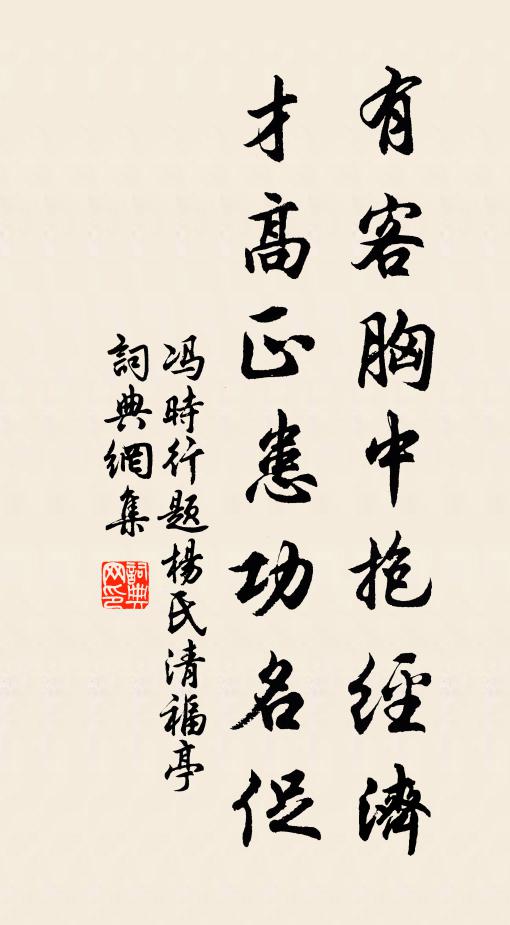 有客胸中抱經濟
才高正患功名促
冯時行题楊氏清福亭
詞典網集
詞典网印